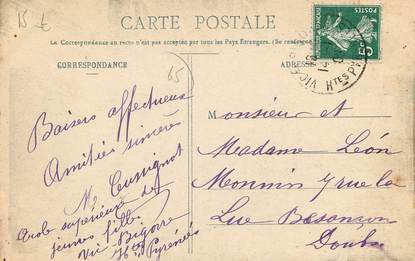 15 €
CARTE POSTALE
La Correspondance au recto n'est pas acceptée par tous les Pays Étrangers. (Se renseigner
CORRESPONDANCE
ADRESSE
65
5c
VIC
Htes P
Baisers affectueux
Amitiés sincères
École supérieure de
jeunes filles
Vic Bigorre
Htes Pyrénées
Monsieur et
Madame Léon
Monnin 7 rue la
Lue Besançon
Doubs